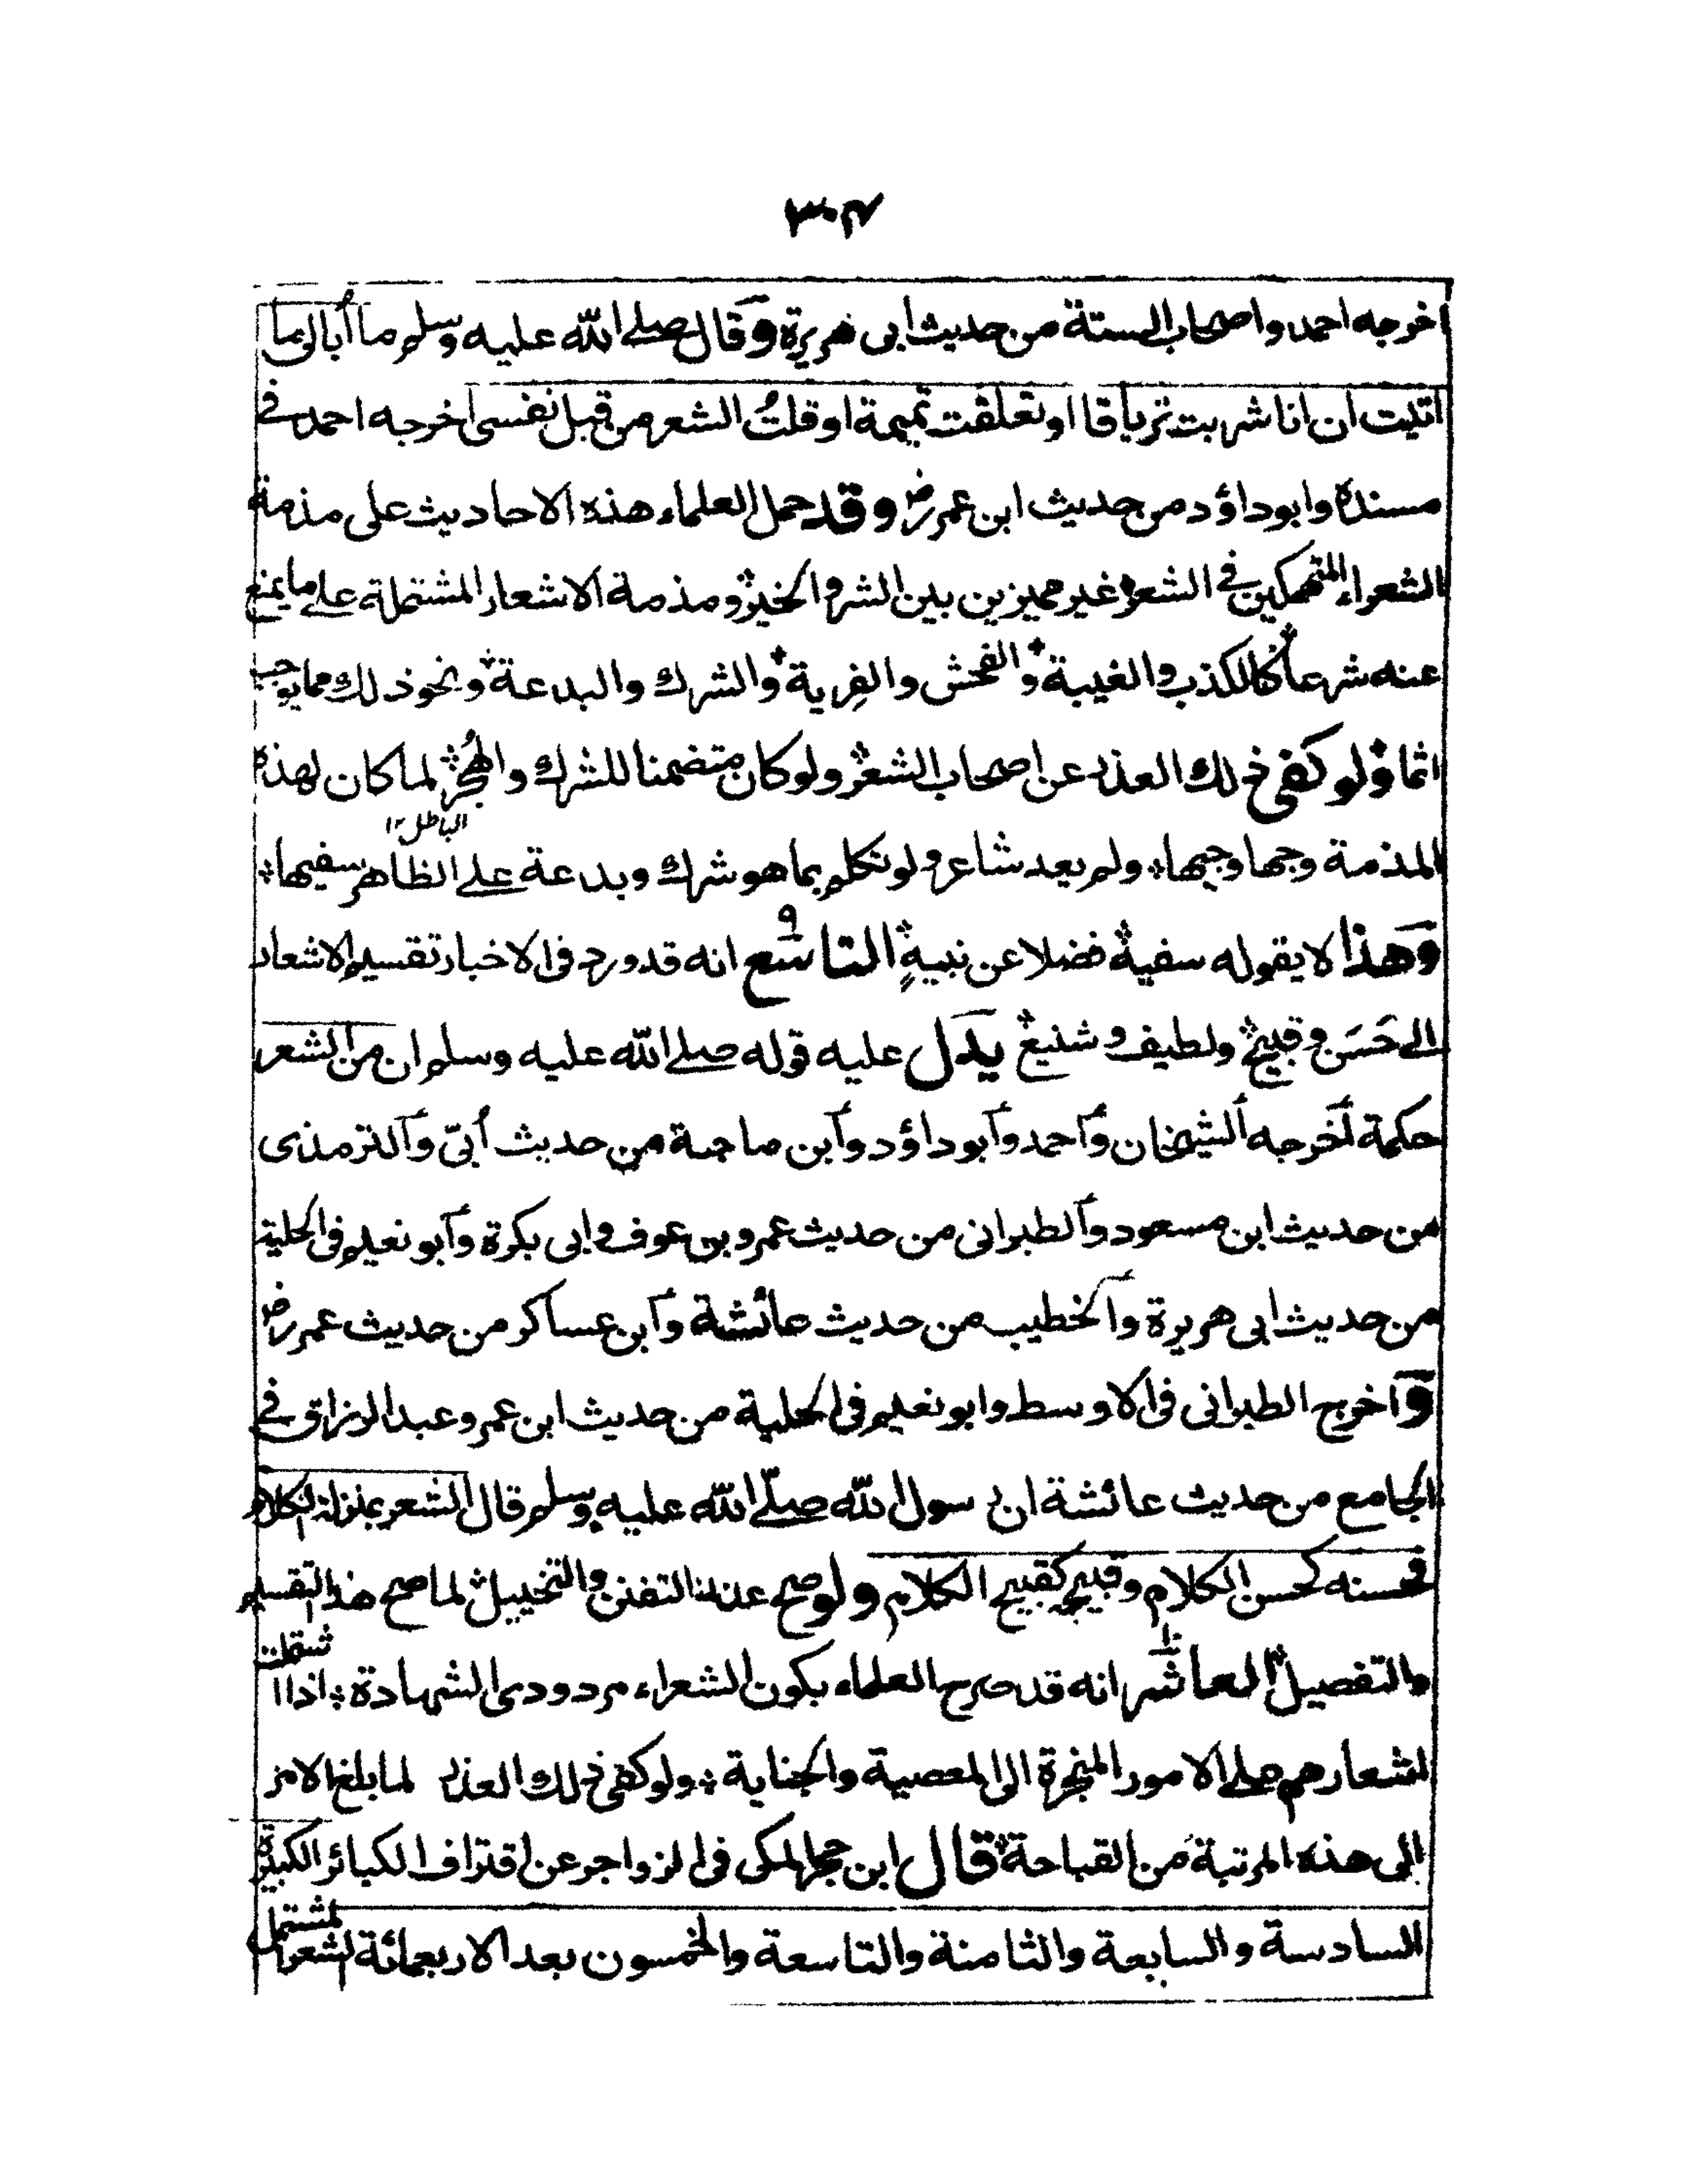 ٣٠٤
اخرجه احمد واصحاب الستة من حديث ابى هريرة وقال صلے الله عليه وسلم ما أبالى ما
اتيت ان انا شربت ترياقا او تعلقت تميمة او قلتُ الشعر من قبل نفسى اخرجه احمد فے
مسنده وابوداؤد من حديث ابن عمر رض وقد حمل العلماء هذه الاحاديث على مذمة
الشعراء المنهمكين فے الشعر؞ غير مميزين بين الشر والخير؞ ومذمة الاشعار المشتملة علے ما يمنع
عنه شرعا؞ كالكذب والغيبة؞ والفحش والفِرية؞ والشرك والبدعة؞ ونحو ذلك مما يوجب
اثما؞ ولو كفى ذلك العذر عن اصحاب الشعر؞ ولو كان متضمنا للشرك والهُجر؞ لما كان لهذه
المذمة وجها وجيها؞ ولم يعد شاعر ولو تكلم بما هو شرك وبدعة علے الظاهر سفيها؞
الباطل ١٢
وهذا لا يقوله سفيه؞ فضلا عن نبيهٍ؞ التاسع ٩ انه قد ورد فى الاخبار تقسيم الاشعار
الے حَسَن وقبيح؞ ولطيف وشنيع؞ يدل عليه قوله صلے الله عليه وسلم ان من الشعر
حكمة أخرجه الشيخان وأحمد وأبو داؤد وأبن ماجة من حديث أبىّ وألترمذى
من حديث ابن مسعود وألطبرانى من حديث عمرو بن عوف وابى بكرة وأبو نعيم فى الحلية
من حديث ابى هريرة وألخطيب من حديث عائشة وأبن عساكر من حديث عمر رض
واخرج الطبرانى فى الاوسط وابو نعيم فى الحلية من حديث ابن عمر وعبد الرزاق فے
الجامع من حديث عائشة ان رسول الله صلّے الله عليه وسلم قال الشعر بمنزلة الكلام
فحسنه كحسن الكلام وقبيحه كقبيح الكلام ولو صح عذر التفنن والتخييل؞ لما صح هذا التقسيم
والتفصيل؞ العاشر ١٠ انه قد صرح العلماء بكون الشعراء مردودى الشهادة؞ اذا اشتملت
اشعارهم علے الامور المنجرة الى المعصية والجناية؞ ولو كفى ذلك العذر لما بلغ الامر
الى هذه المرتبة من القباحة؞ قال ابن حجر المكى فى الزواجر عن اقتراف الكبائر الكبيرة
السادسة والسابعة والثامنة والتاسعة والخمسون بعد الاربعمائة الشعر المشتمل